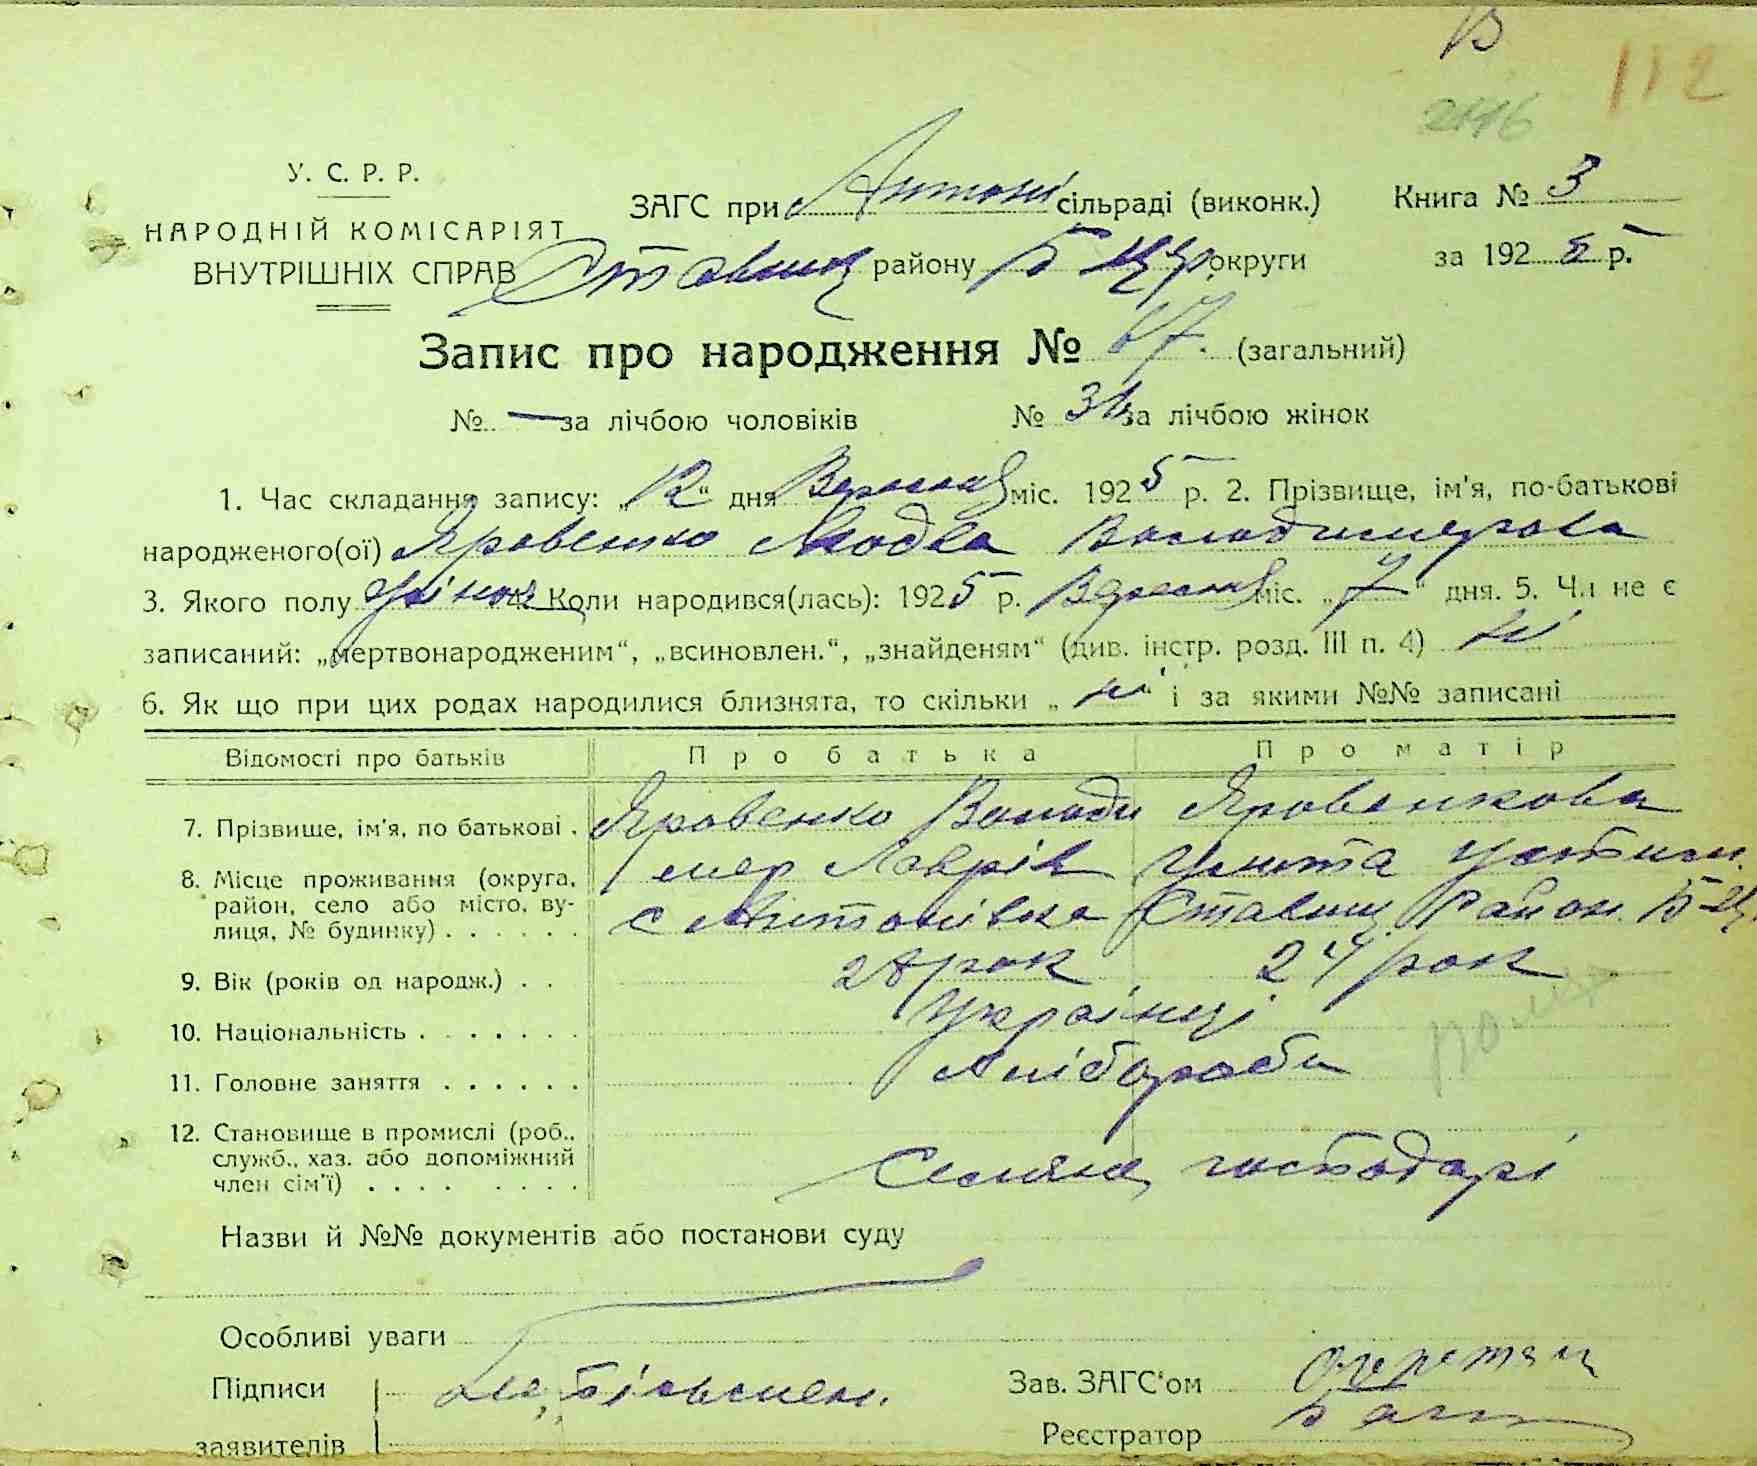 В
112
2116
У. С. Р. Р.
НАРОДНІЙ КОМІСАРІЯТ
ВНУТРІШНІХ СПРАВ
ЗАГС при Антоні сільраді (виконк.) Книга № 3
Ставищ району Б Цер. округи за 1925 р.
Запис про народження № 67. (загальний)
№ — за лічбою чоловіків № 31 за лічбою жінок
1. Час складання запису: „12“ дня Вересня міс. 1925 р. 2. Прізвище, ім'я, по-батькові
народженого(ої) Яровенко Людва Володимерова
3. Якого полу жіноч 4. Коли народився(лась): 1925 р. Вересня міс. „7“ дня. 5. Чи не є
записаний: „мертвонародженим“, „всиновлен.“, „знайденям“ (див. інстр. розд. III п. 4) ні
6. Як що при цих родах народилися близнята, то скільки „ні“ і за якими №№ записані
Відомості про батьків Про батька Про матір
7. Прізвище, ім'я, по батькові. Яровенко Володи Яровенкова
мер Лаврів Устим.
8. Місце проживання (округа, район, село або місто, вулиця, № будинку) с Антонівка Ставищ Район. Б-Ц.
9. Вік (років од народж.) 28 рок 24 рок
10. Національність Українці
11. Головне заняття Хлібороби
12. Становище в промислі (роб., служб., хаз. або допоміжний член сім'ї) Селяне господарі
Назви й №№ документів або постанови суду
Особливі уваги
Підписи заявителів
Зав. ЗАГС'ом
Реєстратор